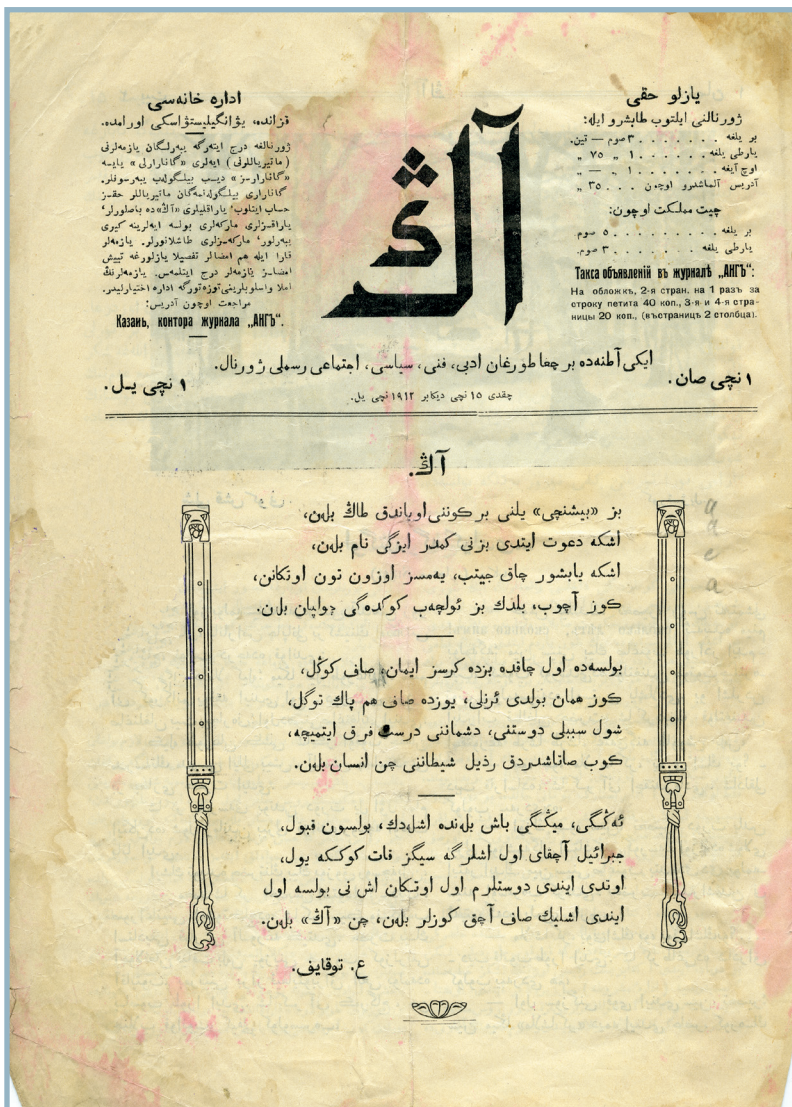 یازلو حقی
ژورنالنی ایلتوب طابشرو ایله:
بر یلغه . . . . . . ۳ صوم — تین.
یارطی یلغه . . . . . ۱ „ ۷۵ „
اوچ آیغه . . . . . ۱ „ — „
آدریس آلماشدرو اوچون . . . ۳۵ „
چیت مملکت اوچون:
بر یلغه . . . . . . . . ۵ صوم.
یارطی یلغه . . . . . . ۳ صوم.
Такса объявленій въ журналѣ „АНГЪ“:
На обложкѣ, 2-я стран. на 1 разъ за
строку петита 40 коп., 3-я и 4-я стра-
ницы 20 коп., (въстраницѣ 2 столбца).
آڭ
اداره خانه‌سی
قزانده، یۋانگیلیستۋاسکی اورامده.
ژورنالغه درج ایتەرگه یبەرلگان یازمەلرنی
(ماتیریاللرنی) ایەلری «گاناراری» یایسه
«گانارارسز» دیب بیلگولەب یبەرسونلر.
گاناراری بیلگولەنمەگان ماتیریاللر حقسز
حساب ایتلوب، یاراقلیلری «آڭ»ده باصلورلر،
یاراقسزلری مارکەلری بولسه ایەلرینه کیری
یبەرلور، مارکەسزلری طاشلانورلر. یازمەلر
قارا ایله هم امضالر تفصیلا یازلورغه تییش
امضاسز یازمەلر درج ایتلمەس. یازمەلرنڭ
املا واسلوبلرینی توزەتورگه اداره اختیارلیدر.
مراجعت اوچون آدریس:
Казань, контора журнала „АНГЪ“.
ایکی آطنه‌ده بر چغا طورغان ادبی، فنی، سیاسی، اجتماعی رسملی ژورنال.
۱ نچی صان.
چقدی ۱۵ نچی دیکابر ۱۹۱۲ نچی یل.
۱ نچی یـل.
آڭ.
بز «بیشنچی» یلنی بر کوننی اویاندق طاڭ بلەن،
اشکه دعوت ایتدی بزنی کمدر ایزگی نام بلەن،
اشکه یابشور چاق جیتب، یەمسز اوزون تون اوتکانن،
کوز آچوب، بلدك بز ئولچەب کوکدەگی چولپان بلەن.
بولسەده اول چاقده بزده کرسز ایمان، صاف کوڭل،
کوز همان بولدی ئرنلی، یوزده صاف هم پاك توگل،
شول سببلی دوستنی، دشماننی درست فرق ایتمیچه،
کوب صاتاشدردق رذیل شیطاننی چن انسان بلەن.
ئەڭگی، میڭگی باش بلەنده اشلەدك، بولسون قبول،
جبرائیل آچقای اول اشلرگه سیگز قات کوککه یول،
اوتدی ایندی دوستلرم اول اوتکان اش نی بولسه اول
ایندی اشلیك صاف آچق کوزلر بلەن، چن «آڭ» بلەن.
ع. توقایف.